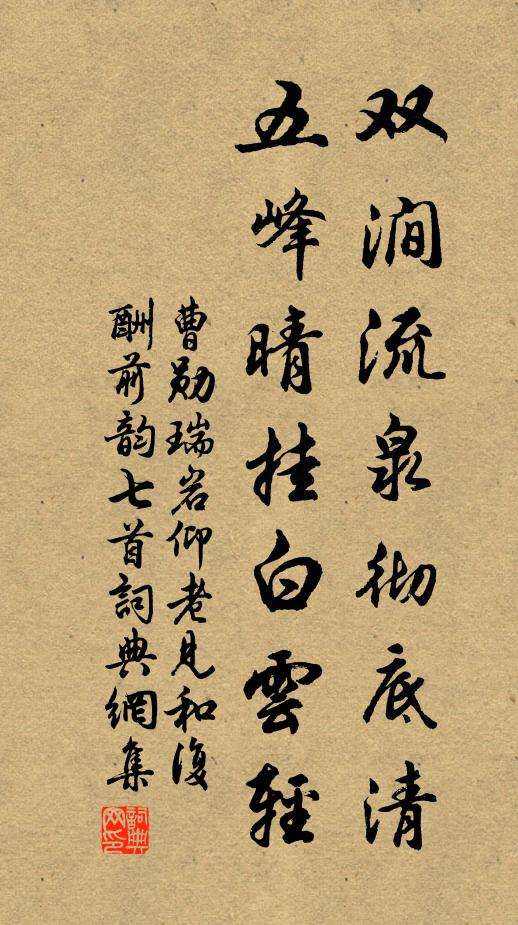 双涧流泉彻底清
五峰晴挂白雲轻
曹勋瑞岩仰老见和復
酬前韵七首詞典網集
詞典
网印